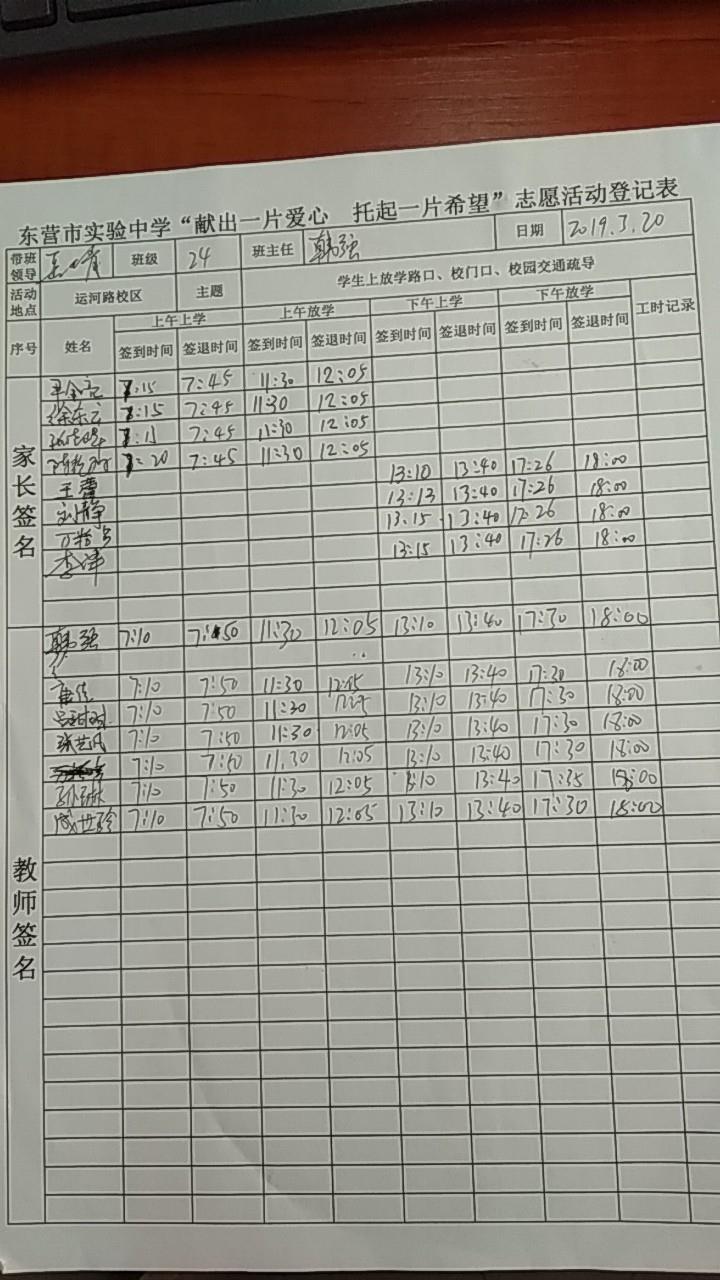 东营市实验中学“献出一片爱心 托起一片希望”志愿活动登记表
带班领导 班级 24 班主任 韩强 日期 2019.3.20
活动地点 运河路校区 主题 学生上放学路口、校门口、校园交通疏导
序号 姓名 上午上学 上午放学 下午上学 下午放学 工时记录
签到时间 签退时间 签到时间 签退时间 签到时间 签退时间 签到时间 签退时间
家长签名
7:15 7:45 11:30 12:05
徐东云 7:15 7:45 11:30 12:05
7:15 7:45 11:30 12:05
7:20 7:45 11:30 12:05
王蕾 13:10 13:40 17:26 18:00
刘静 13:13 13:40 17:26 18:00
13:15 13:40 17:26 18:00
李洋 13:15 13:40 17:26 18:00
教师签名
韩强 7:10 7:50 11:30 12:05 13:10 13:40 17:30 18:00
唐佳 7:10 7:50 11:30 12:05 13:10 13:40 17:30 18:00
7:10 7:50 11:30 13:10 13:40 17:30 18:00
张艺凡 7:10 7:50 11:30 12:05 13:10 13:40 17:30 18:00
7:10 7:50 11.30 12:05 13:10 13:40 17:30 18:00
孙琳 7:10 7:50 11:30 12:05 13:10 13:40 17:35 18:00
成世玲 7:10 7:50 11:30 12:05 13:10 13:40 17:30 18:00